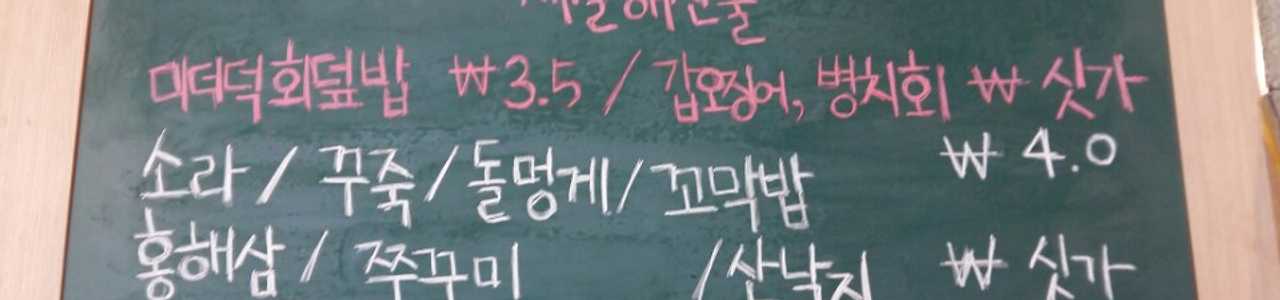 제철해산물
미더덕회덮밥 ₩3.5 / 갑오징어, 병치회 ₩ 싯가
소라 / 꾸죽 / 돌멍게 / 꼬막밥 ₩ 4.0
홍해삼 / 쭈꾸미 / 산낙지 ₩ 싯가